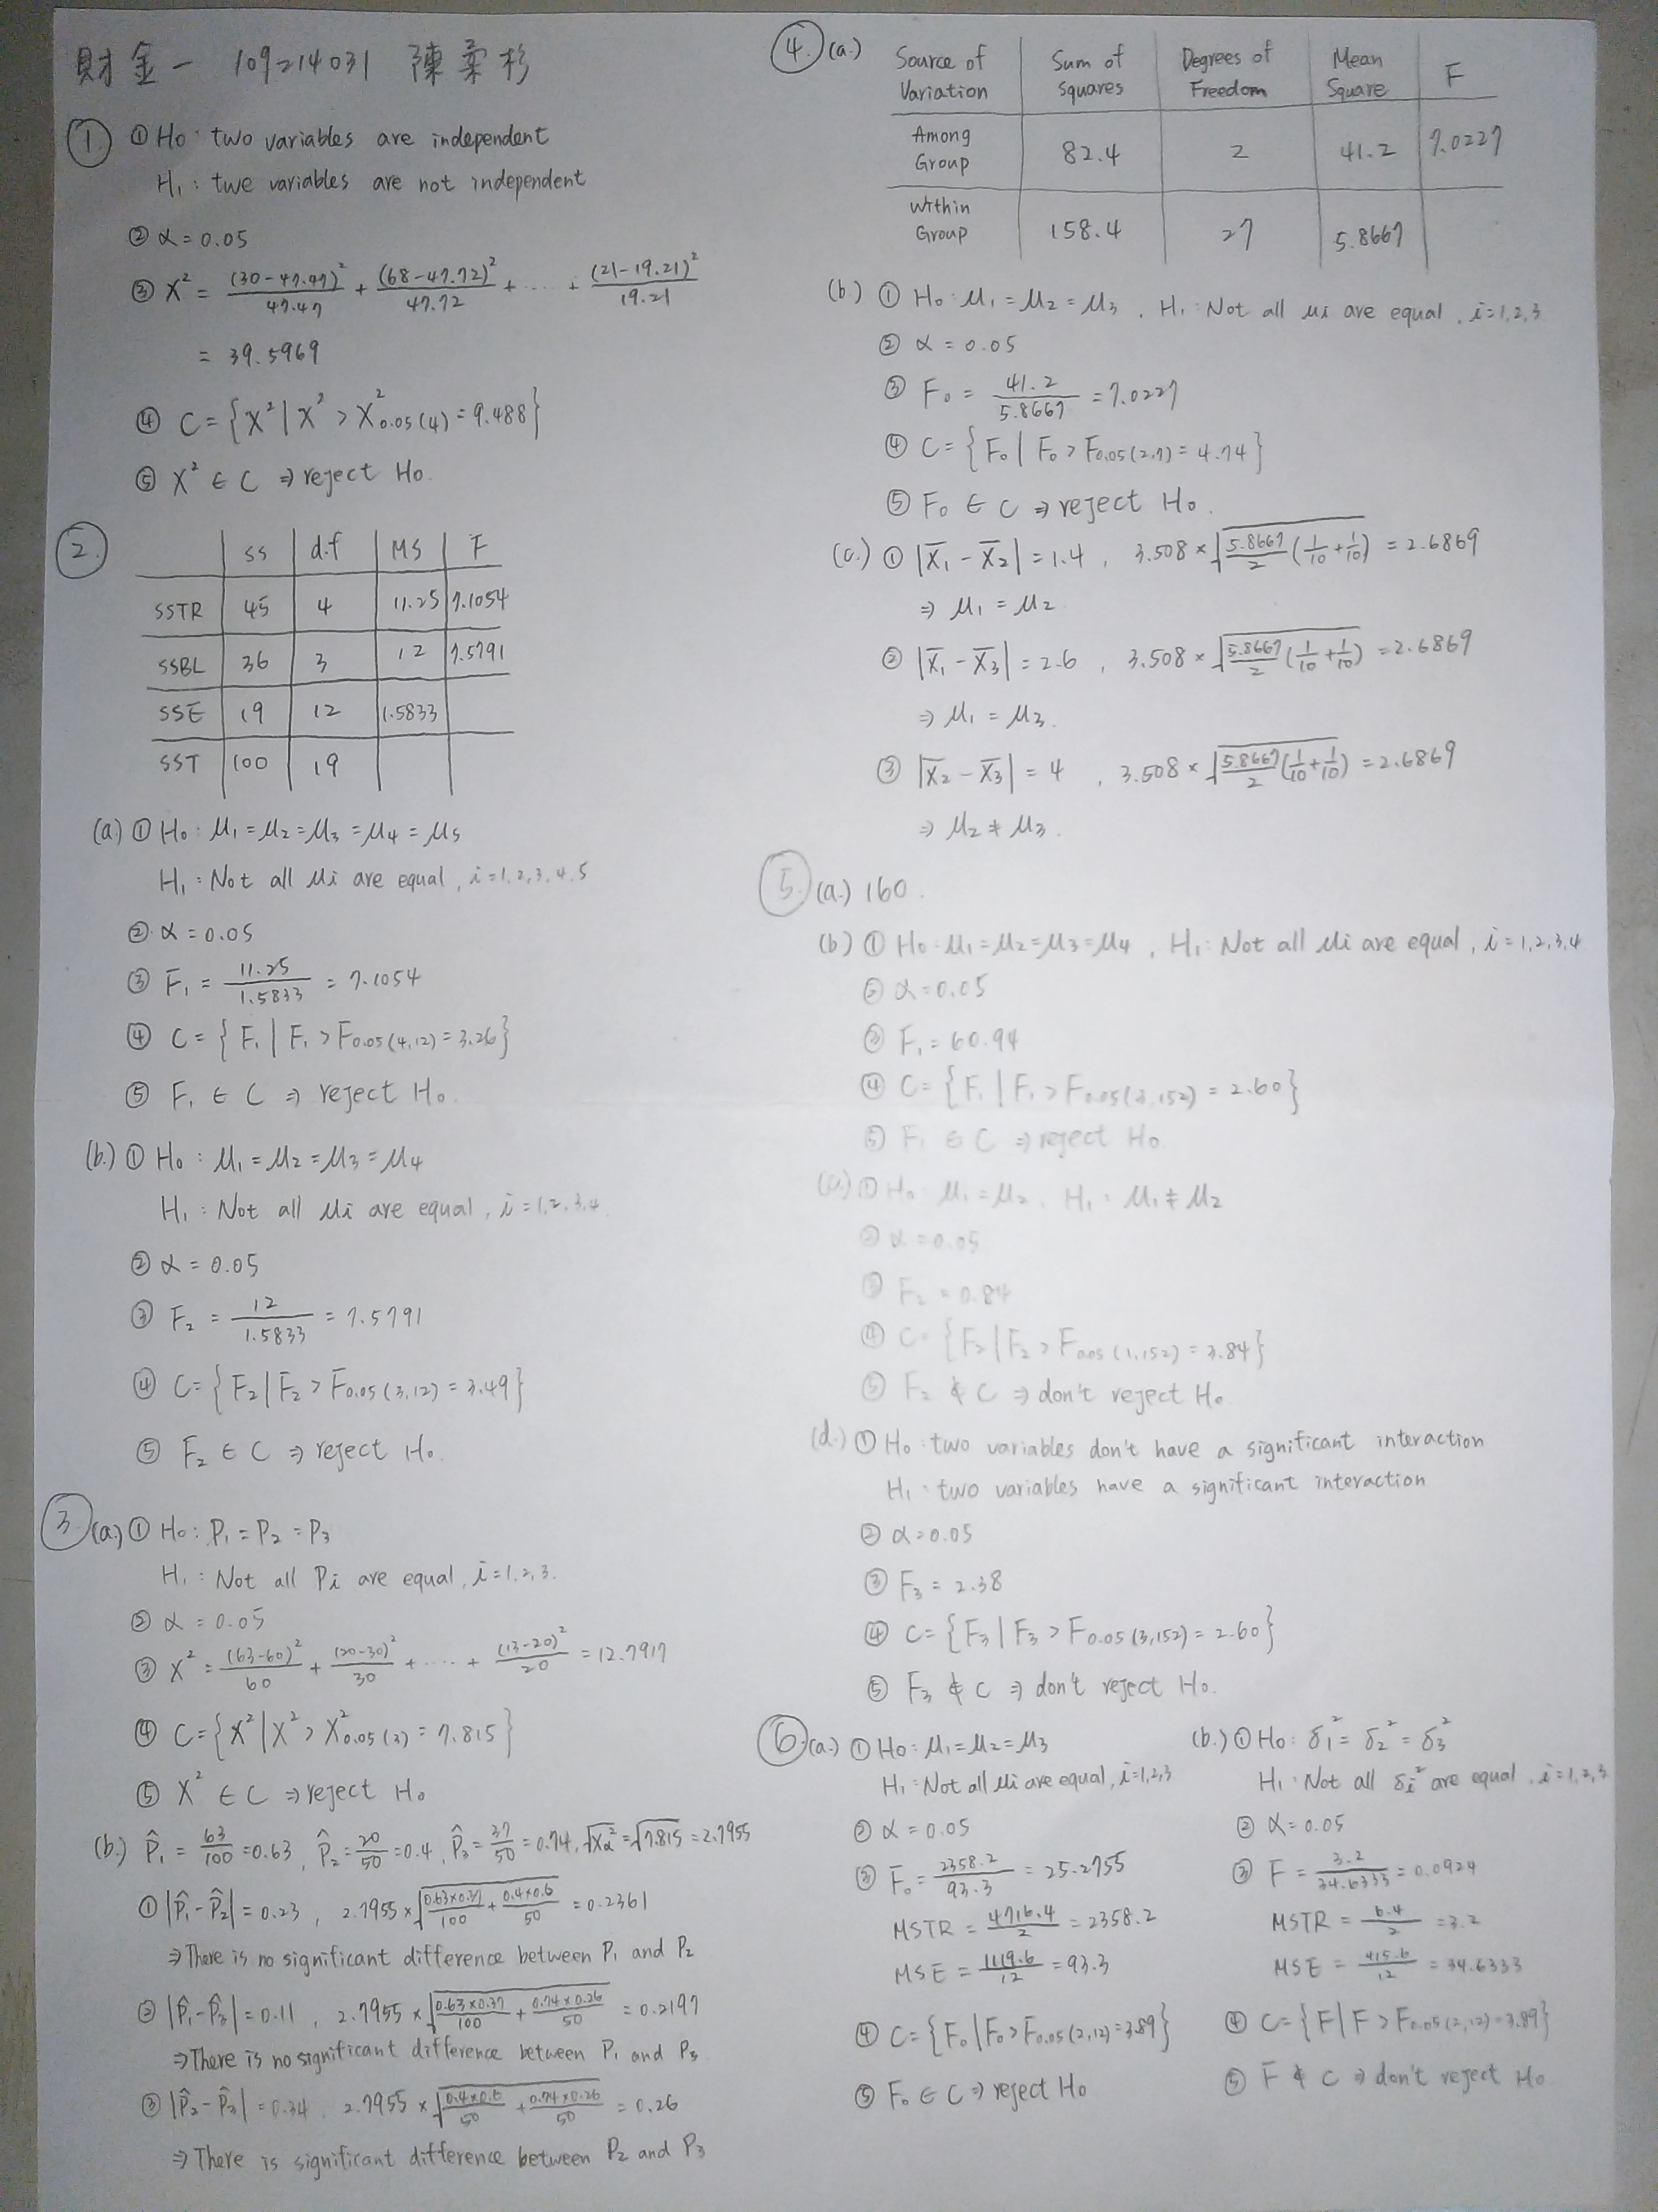 財金一 109214031 陳柔杉
1. ① H₀: two variables are independent
H₁: twe variables are not independent
② α = 0.05
③ X² = (30-47.47)²/47.47 + (68-47.72)²/47.72 + ... + (21-19.21)²/19.21
= 39.5969
④ C = {X² | X² > X²0.05(4) = 9.488}
⑤ X² ∈ C ⇒ reject H₀.
2.
SS d.f MS F
SSTR 45 4 11.25 7.1054
SSBL 36 3 12 7.5791
SSE 19 12 1.5833
SST 100 19
(a.) ① H₀: μ₁ = μ₂ = μ₃ = μ₄ = μ₅
H₁: Not all μi are equal, i=1,2,3,4,5
② α = 0.05
③ F₁ = 11.25/1.5833 = 7.1054
④ C = {F₁ | F₁ > F0.05(4,12) = 3.26}
⑤ F₁ ∈ C ⇒ reject H₀.
(b.) ① H₀: μ₁ = μ₂ = μ₃ = μ₄
H₁: Not all μi are equal, i=1,2,3,4.
② α = 0.05
③ F₂ = 12/1.5833 = 7.5791
④ C = {F₂ | F₂ > F0.05(3,12) = 3.49}
⑤ F₂ ∈ C ⇒ reject H₀.
3. (a.) ① H₀: P₁ = P₂ = P₃
H₁: Not all Pi are equal, i=1,2,3.
② α = 0.05
③ X² = (63-60)²/60 + (20-30)²/30 + .... + (13-20)²/20 = 12.7917
④ C = {X² | X² > X²0.05(3) = 7.815}
⑤ X² ∈ C ⇒ reject H₀
(b.) P̂₁ = 63/100 = 0.63, P̂₂ = 20/50 = 0.4, P̂₃ = 37/50 = 0.74, √X²α = √7.815 = 2.7955
① |P̂₁-P̂₂| = 0.23, 2.7955 × √(0.63×0.37/100 + 0.4×0.6/50) = 0.2361
⇒ There is no significant difference between P₁ and P₂
② |P̂₁-P̂₃| = 0.11, 2.7955 × √(0.63×0.37/100 + 0.74×0.26/50) = 0.2197
⇒ There is no significant difference between P₁ and P₃
③ |P̂₂-P̂₃| = 0.34, 2.7955 × √(0.4×0.6/50 + 0.74×0.26/50) = 0.26
⇒ There is significant difference between P₂ and P₃
4. (a.)
Source of Variation Sum of Squares Degrees of Freedom Mean Square F
Among Group 82.4 2 41.2 7.0227
Within Group 158.4 27 5.8667
(b) ① H₀: μ₁ = μ₂ = μ₃, H₁: Not all μi are equal, i=1,2,3
② α = 0.05
③ F₀ = 41.2/5.8667 = 7.0227
④ C = {F₀ | F₀ > F0.05(2,7) = 4.74}
⑤ F₀ ∈ C ⇒ reject H₀.
(c.) ① |X̄₁ - X̄₂| = 1.4, 3.508 × √(5.8667/2 (1/10 + 1/10)) = 2.6869
⇒ μ₁ = μ₂
② |X̄₁ - X̄₃| = 2.6, 3.508 × √(5.8667/2 (1/10 + 1/10)) = 2.6869
⇒ μ₁ = μ₃.
③ |X̄₂ - X̄₃| = 4, 3.508 × √(5.8667/2 (1/10 + 1/10)) = 2.6869
⇒ μ₂ ≠ μ₃.
5. (a.) 160.
(b) ① H₀: μ₁ = μ₂ = μ₃ = μ₄, H₁: Not all μi are equal, i=1,2,3,4
② α = 0.05
③ F₁ = 60.94
④ C = {F₁ | F₁ > F0.05(3,152) = 2.60}
⑤ F₁ ∈ C ⇒ reject H₀
(c.) ① H₀: μ₁ = μ₂, H₁: μ₁ ≠ μ₂
② α = 0.05
③ F₂ = 0.84
④ C = {F₂ | F₂ > F0.05(1,152) = 3.84}
⑤ F₂ ∉ C ⇒ don't reject H₀
(d.) ① H₀: two variables don't have a significant interaction
H₁: two variables have a significant interaction
② α = 0.05
③ F₃ = 2.38
④ C = {F₃ | F₃ > F0.05(3,152) = 2.60}
⑤ F₃ ∉ C ⇒ don't reject H₀.
6. (a.) ① H₀: μ₁ = μ₂ = μ₃
H₁: Not all μi are equal, i=1,2,3
② α = 0.05
③ F₀ = 2358.2/93.3 = 25.2755
MSTR = 4716.4/2 = 2358.2
MSE = 1119.6/12 = 93.3
④ C = {F₀ | F₀ > F0.05(2,12) = 3.89}
⑤ F₀ ∈ C ⇒ reject H₀
(b.) ① H₀: δ₁² = δ₂² = δ₃²
H₁: Not all δi² are equal, i=1,2,3
② α = 0.05
③ F = 3.2/34.6333 = 0.0924
MSTR = 6.4/2 = 3.2
MSE = 415.6/12 = 34.6333
④ C = {F | F > F0.05(2,12) = 3.89}
⑤ F ∉ C ⇒ don't reject H₀